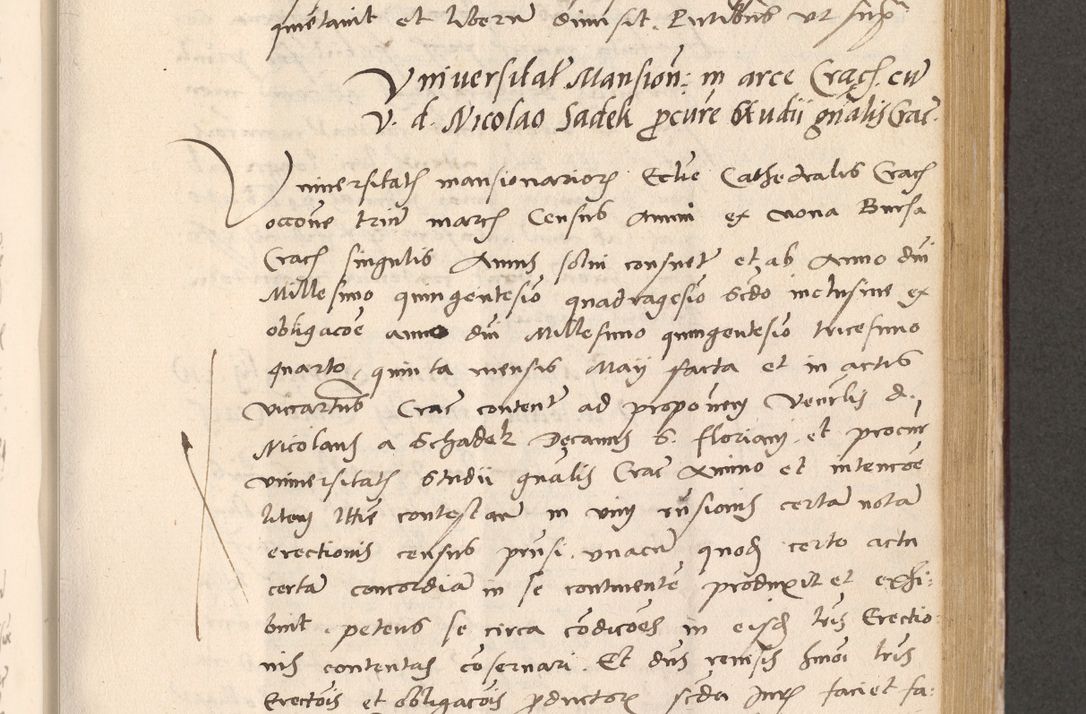 quietavit et liberu dimisit. Pntibus ut supra
Universitat Mansion: in arce Crac. cu
V. d. Nicolao Sadek pcure Studii gnalis Crac.
Universitatis mansionarior Eccie Cathedralis Crac
occone triu marcar Census Annui ex nova Bursa
Crac singulis Annis solvi consuet et ab Anno dni
Millesimo quingentesio quadragesio scdo inclusive ex
obligacoe anno dni Millesimo quingentesio tricesimo
quarto, quinta mensis May facta et in actis
vicariatus Crac content ad proponen Venerlis d.
Nicolaus a Schadek Decanus S. Floriani et procur
universitatis Studii gnalis Crac Animo et intencoe
litem littie contestare in vim censionis certa nota
erectionis census pnsi. unacu quod certo actu
certa concordia in se continente produxit et exhi:
buit, petens se circa codicoes in eisd lris Erectio
nis contentas coservari. Et dns remisis hmoi lris
Erectois et obligacois pductor scda Jurn faciet fa: